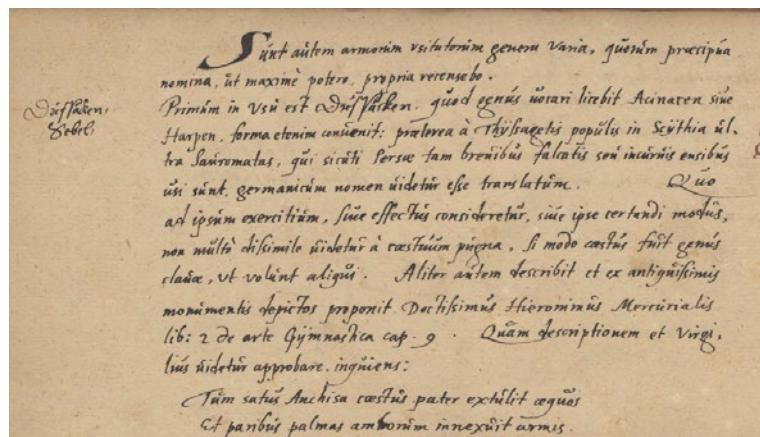 Sunt autem armorum usitatorum genera varia, quorum præcipua
nomina, ut maximè potero, propria recensebo.
Primum in usu est Dussacken. quod equus vocari licebit Acinacen sive
Dussacken,
Sebel.
Harpen, forma etenim convenit: præterea à Thyssagetis populis in Scythia ul-
tra Sauromatas, qui sicuti Persæ tam brevibus falcatis seu incurvis ensibus
usi sunt, germanicum nomen videtur esse translatum. Quo
ad ipsum exercitium, sive effectus consideretur, sive ipse certandi modus,
non multò dissimile videtur à cæstuum pugna, si modo cæstus fuit genus
clavæ, ut volunt aliqui. Aliter autem describit et ex antiquissimis
monumentis depictos proponit Doctissimus Hieronimus Mercurialis
lib: 2 de arte Gymnastica cap. 9. Quam descriptionem et Virgi-
lius videtur approbare, inquiens:
Tum satus Anchisa cæstus pater extulit æquos
Et paribus palmas amborum innexuit armis.